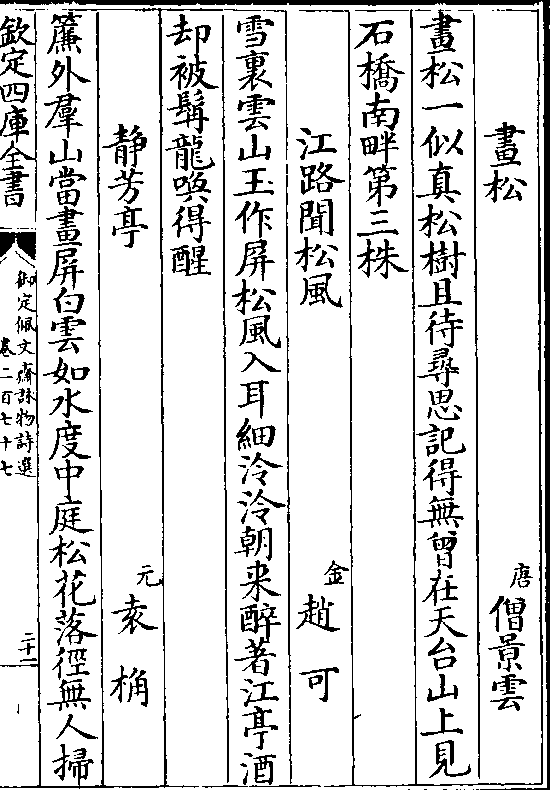 畫松　唐　僧景雲
畫松一似真松樹且待尋思記得無曾在天台山上見
石橋南畔第三株
江路聞松風　金　趙可
雪裏雲山玉作屏松風入耳細泠泠朝来醉著江亭酒
却被髯龍喚得醒
靜芳亭　元　袁桷
簾外羣山當畫屏白雲如水度中庭松花落徑無人掃
欽定四庫全書
御定佩文齋詠物詩選
卷二百七十七
二十二